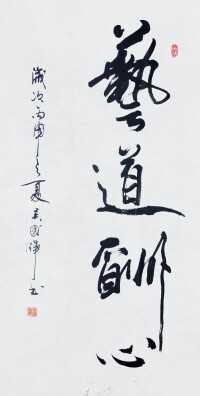 藝道酬心
歲次丙申之夏吴國
書